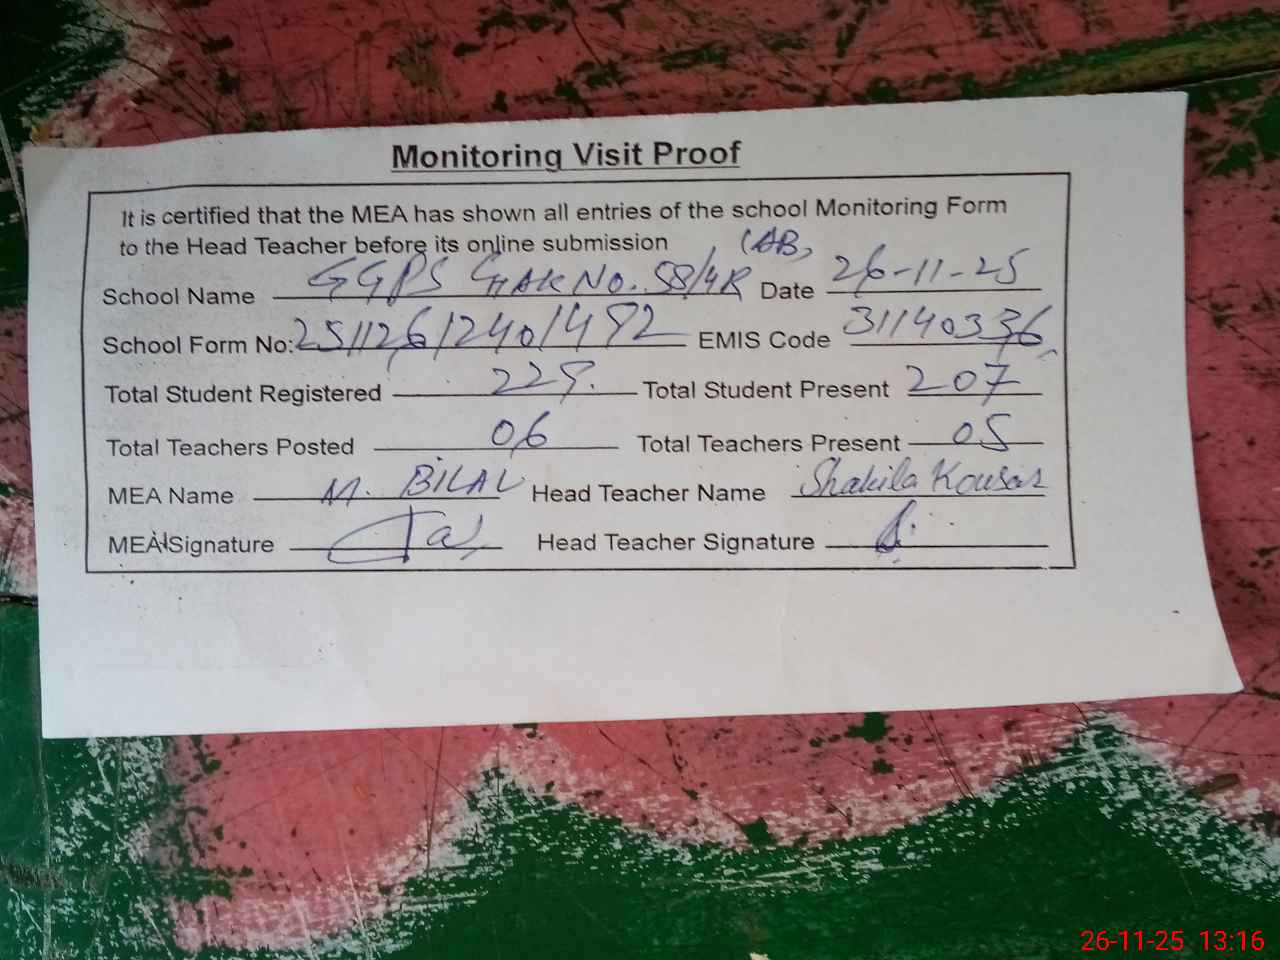 Monitoring Visit Proof
It is certified that the MEA has shown all entries of the school Monitoring Form
to the Head Teacher before its online submission
(AB)
School Name GGPS CHAK No. 58/4R Date 26-11-25
School Form No: 25112612401492 EMIS Code 31140336
Total Student Registered 229. Total Student Present 207
Total Teachers Posted 06 Total Teachers Present 05
MEA Name M. BILAL Head Teacher Name Shakila Kousar
MEA Signature Head Teacher Signature
26-11-25 13:16